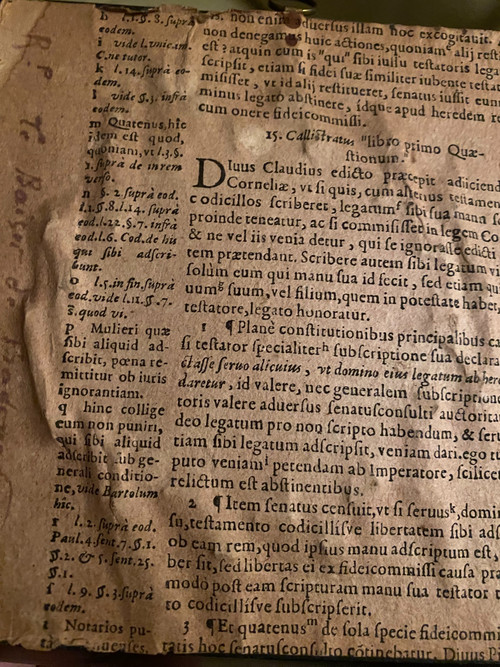 h l.1.§.8. suprà
eodem.
i vide l. unicam.
C. ne tutor.
k l.14. suprà eo-
dem.
l vide §.3. infrà
eodem.
m Quatenus, hîc
idem est quod,
quoniam, vt l.3.§.
3. suprà de in rem
verso.
n §. 2 suprà eod.
l.1.§.8.l.14. suprà
eod.l.22.§.7. infrà
eod.l.6. Cod. de his
qui sibi adscri-
bunt.
o l.5. in fin. suprà
eod. vide l.11.§.7.
3. quod vi.
p Mulieri quæ
sibi aliquid ad-
scribit, pœna re-
mittitur ob iuris
ignorantiam.
q hinc collige
eum non puniri,
qui sibi aliquid
adscribit sub ge-
nerali conditio-
ne, vide Bartolum
hîc.
r l.2. suprà eod.
Paul. 4. sent. 7. §.1.
§.2. & 5. sent. 25.
§.1.
s l. 9. §.3. suprà
eodem.
t Notarios pu-
non enim aduersus illam hoc excogitauit.
non denegamus huic actiones, quoniam alij resti
est? atquin cum is "qui" sibi iussu testatoris lega
scripsit, etiam si fidei suæ similiter iubente testat
misisset, vt id alij restitueret, senatus iussit eum
minus legato abstinere, idque apud heredem re
cum onere fideicommissi.
15. Callistratus "libro primo Quæ-
stionum."
DIuus Claudius edicto præcepit adiiciend
Corneliæ, vt si quis, cum alterius testamen
codicillos scriberet, legatum sibi sua manu sc
proinde teneatur, ac si commisisset in legem Co
& ne vel iis venia detur, qui se ignorasse edicti
tem prætendant. Scribere autem sibi legatum vi
solùm eum qui manu sua id fecit, sed etiam qui
uum suum, vel filium, quem in potestate habet,
testatore, legato honoratur.
1 ¶ Planè constitutionibus principalibus ca
si testator specialiter h subscriptione sua declara
ctasse seruo alicuius, vt domino eius legatum ab here
daretur, id valere, nec generalem subscriptione
toris valere aduersus senatusconsulti auctoritat
deo legatum pro non scripto habendum, & seru
tiam sibi legatum adscripsit, veniam dari. ego tu
puto veniam l petendam ab Imperatore, scilicet
relictum est abstinentibus.
2 ¶ Item senatus censuit, vt si seruus k, domin
su, testamento codicillisve libertatem sibi ads
ob eam rem, quod ipsius manu adscriptum est,
ber sit, sed libertas ei ex fideicommissi causa pra
modò post eam scripturam manu sua testator t
to codicillisve subscripserit.
3 ¶ Et quatenus m de sola specie fideicommis
tatis hoc senatusconsulto cõtinebatur, Diuus Pi